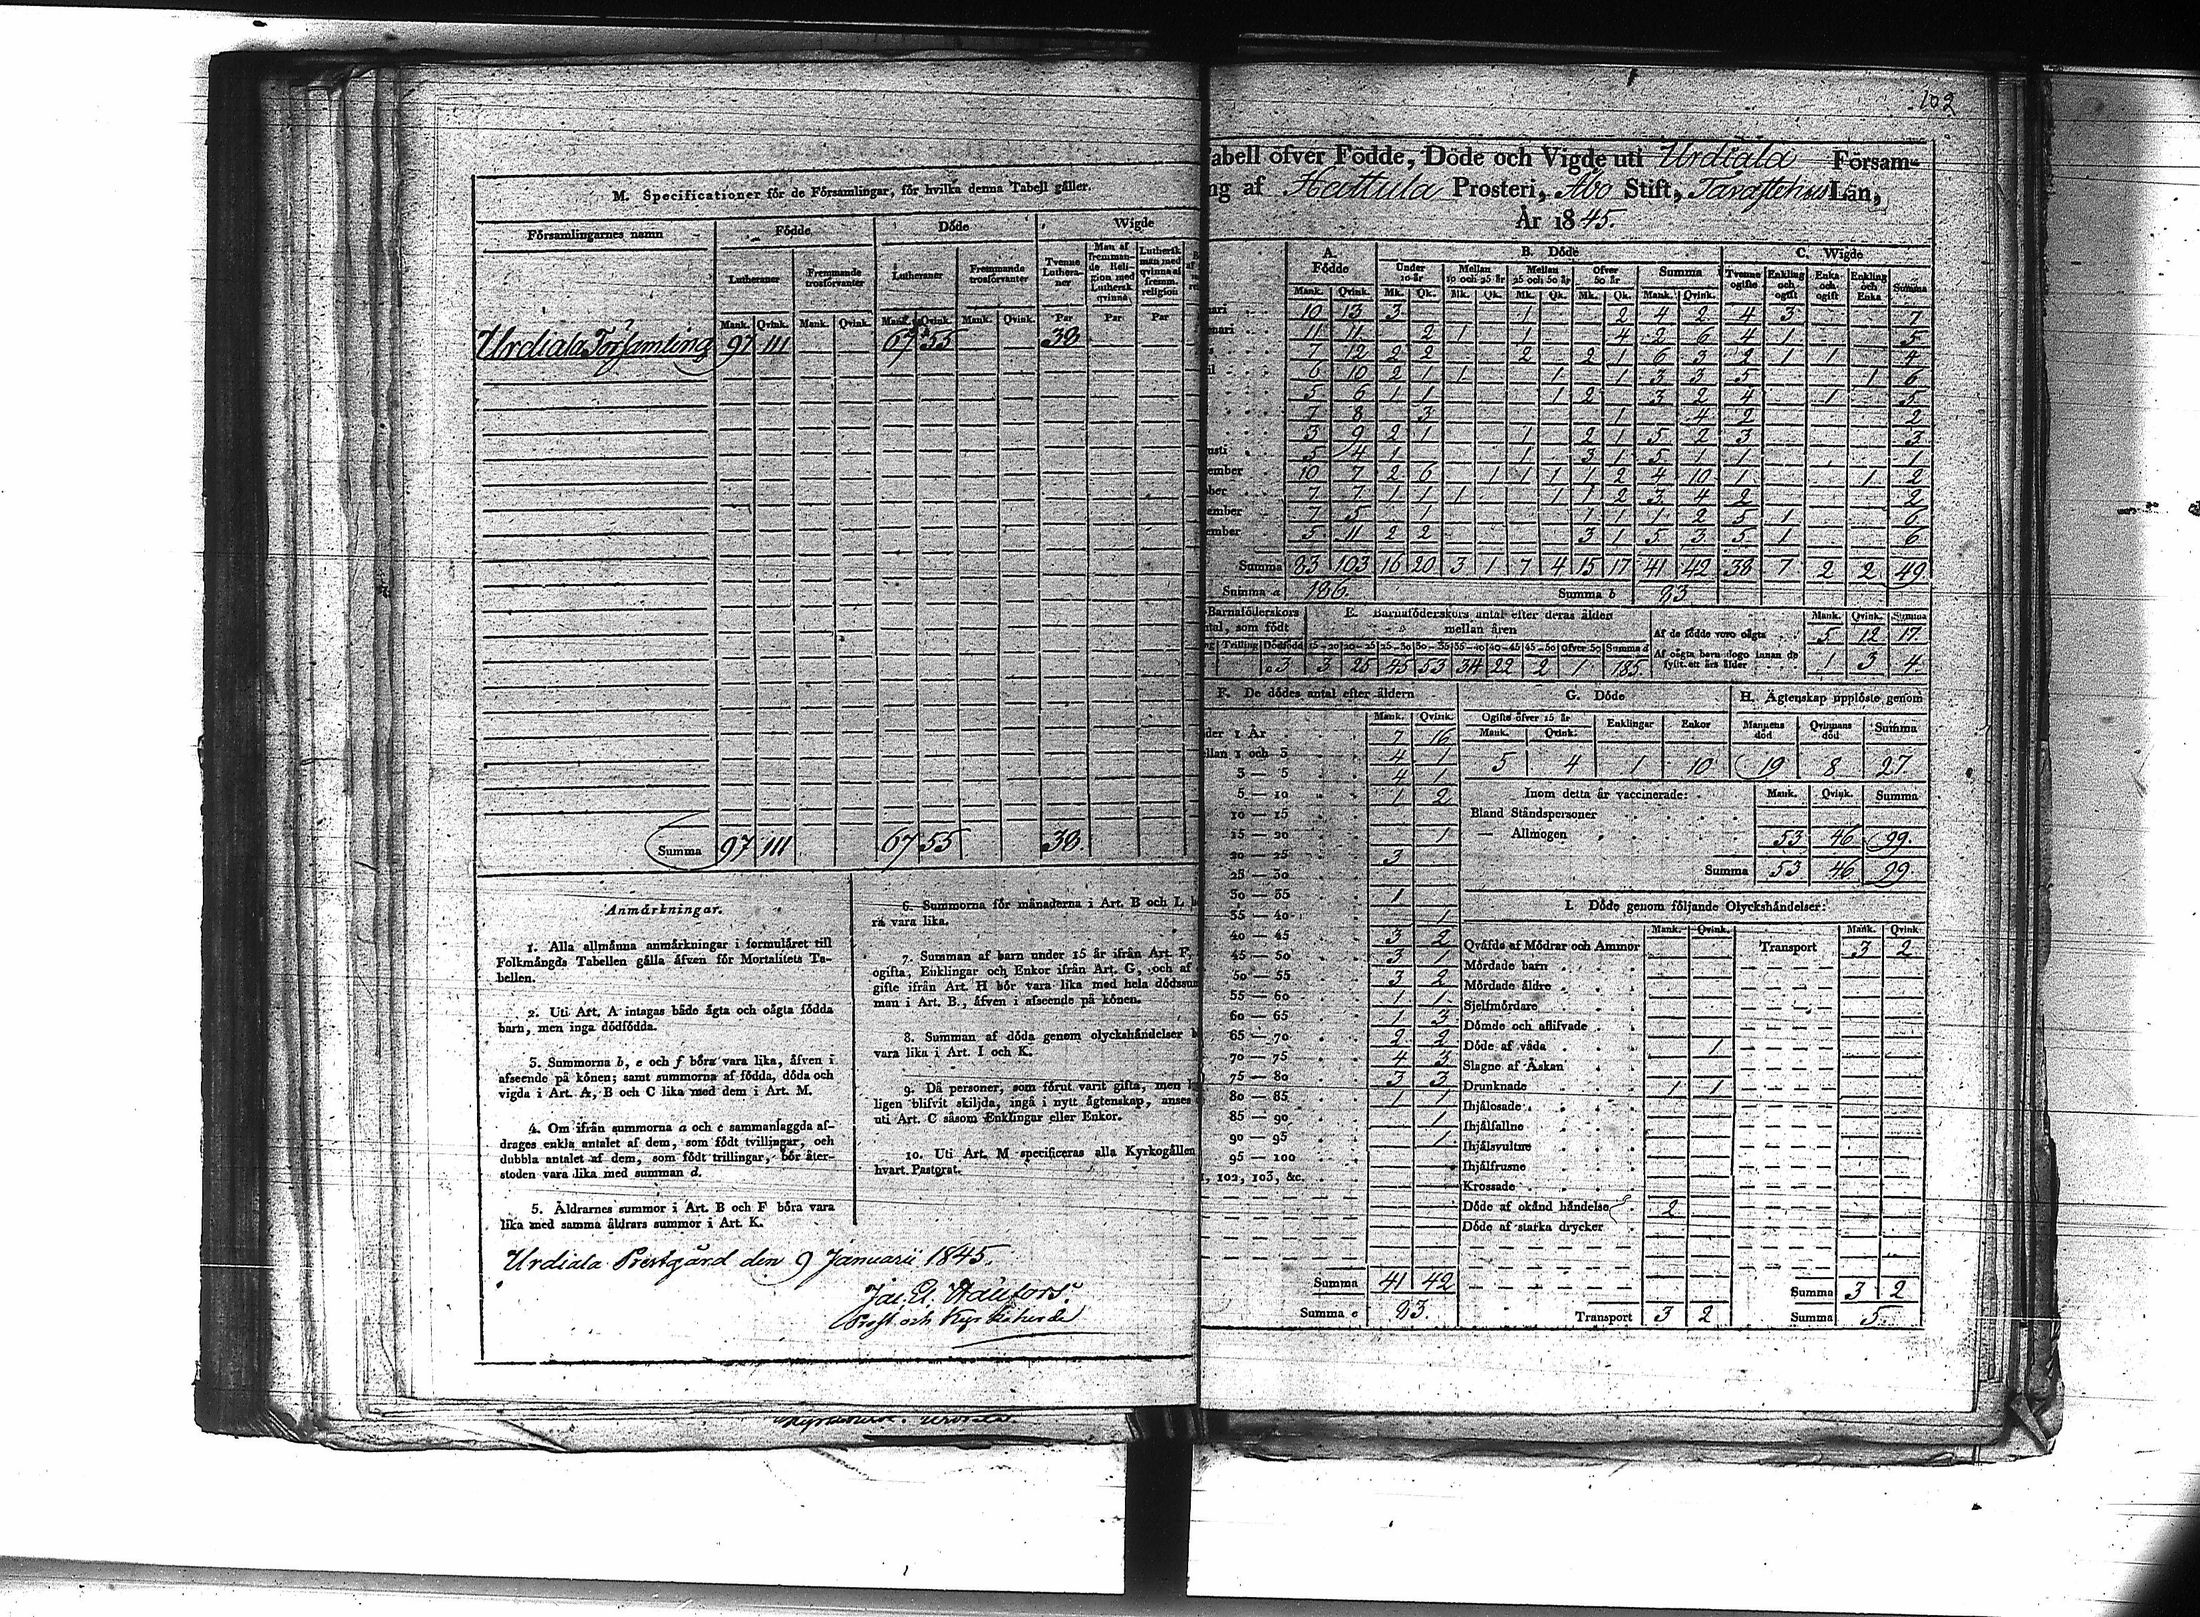 M. Specificationer för de Församlingar, för hvilka denna Tabell gäller.
Församlingarnes namn Födde Döde Wigde
Lutheraner Fremmande trosförvanter Lutheraner Fremmande trosförvanter Tvenne Lutheraner Man af fremmande Religion med Luthersk qvinna Luthersk man med qvinna af fremm. religion
Mank. Qvink. Mank. Qvink. Mank. Qvink. Mank. Qvink. Par Par Par
Urdiala Församling 97 111 67 55 38
Summa 97 111 67 55 38
Anmärkningar.
1. Alla allmänna anmärkningar i formuläret till
Folkmängds Tabellen gälla äfven för Mortalitets Ta-
bellen.
2. Uti Art. A intagas både ägta och oägta födda
barn, men inga dödfödda.
3. Summorna b, e och f böra vara lika, äfven i
afseende på könen; samt summorna af födda, döda och
vigda i Art. A, B och C lika med dem i Art. M.
4. Om ifrån summorna a och c sammanlaggda af-
drages enkla antalet af dem, som födt tvillingar, och
dubbla antalet af dem, som födt trillingar, bör åter-
stoden vara lika med summan d.
5. Åldrarnes summor i Art. B och F böra vara
lika med samma åldrars summor i Art. K.
6. Summorna för månaderna i Art. B och L
ra vara lika.
7. Summan af barn under 15 år ifrån Art. F,
ogifta, Enklingar och Enkor ifrån Art. G, och af
gifte ifrån Art. H bör vara lika med hela dödssum
man i Art. B., äfven i afseende på könen.
8. Summan af döda genom olyckshändelser
vara lika i Art. I och K.
9. Då personer, som förut varit gifta, men
ligen blifvit skiljda, ingå i nytt ägtenskap, anses
uti Art. C såsom Enklingar eller Enkor.
10. Uti Art. M specificeras alla Kyrkogällen
hvart Pastorat.
Urdiala Prestgård den 9 Januarii 1845.
Prost och Kyrkoherde
102
abell öfver Födde, Döde och Vigde uti Urdiala Försam-
ng af Hattula Prosteri, Åbo Stift, Tavastehus Län,
År 1845.
A. Födde B. Döde C. Wigde
Under 10 år Mellan 10 och 25 år Mellan 25 och 50 år Öfver 50 år Summa Tvenne ogifte Enkling och ogift Enka och ogift Enkling och Enka Summa
Mank. Qvink. Mk. Qk. Mk. Qk. Mk. Qk. Mk. Qk. Mank. Qvink.
nari 10 13 3 1 2 4 2 4 3 7
nari 11 11 2 1 1 4 2 6 4 1 5
s 7 12 2 2 2 2 1 6 3 2 1 1 4
il 6 10 2 1 1 1 1 3 3 5 1 6
5 6 1 1 1 2 3 2 4 1 5
7 8 3 1 4 2 2
3 9 2 1 1 2 1 5 2 3 3
usti 5 4 1 1 3 1 5 1 1 1
ember 10 7 2 6 1 1 1 1 2 4 10 1 1 2
ber 7 7 1 1 1 1 1 2 3 4 2 2
ember 7 5 1 1 1 1 2 5 1 6
ember 5 11 2 2 3 1 5 3 5 1 6
Summa 83 103 16 20 3 1 7 4 15 17 41 42 38 7 2 2 49
Summa a 186. Summa b 83
Barnaföderskors
tal, som födt
Trilling Dödfödda
c 3
E. Barnaföderskors antal efter deras ålder
mellan åren
15-20 20-25 25-30 30-35 35-40 40-45 45-50 öfver 50 Summa d
3 25 45 53 34 22 2 1 185.
Mank. Qvink. Summa
Af de födde voro oägta 5 12 17.
Af oägta barn dogo innan de
fyllt ett års ålder 1 3 4.
F. De dödes antal efter åldern
Mank. Qvink.
der 1 År 7 16
llan 1 och 3 4 1
3 — 5 4 1
5 — 10 1 2
10 — 15
15 — 20 1
20 — 25 3
25 — 30
30 — 35 1
35 — 40 1
40 — 45 3 2
45 — 50 3 1
50 — 55 3 2
55 — 60 1 1
60 — 65 1 3
65 — 70 2 2
70 — 75 4 3
75 — 80 3 3
80 — 85 1 1
85 — 90 1
90 — 95 1
95 — 100
102, 103, &c.
Summa 41 42
Summa e 83.
G. Döde
Ogifte öfver 15 år Enklingar Enkor
Mank. Qvink.
5 4 1 10
H. Ägtenskap upplöste genom
Mannens död Qvinnans död Summa
19 8 27.
Inom detta år vaccinerade: Mank. Qvink. Summa
Bland Ståndspersoner
— Allmogen 53 46 99.
Summa 53 46 99
I. Döde genom följande Olyckshändelser:
Mank. Qvink. Mank. Qvink.
Qväfde af Mödrar och Ammor Transport 3 2
Mördade barn
Mördade äldre
Sjelfmördare
Dömde och aflifvade
Döde af våda 1
Slagne af Åskan
Drunknade 1 1
Ihjälosade
Ihjälfallne
Ihjälsvultne
Ihjälfrusne
Krossade
Döde af okänd händelse 2
Döde af starka drycker
Summa 3 2
Transport 3 2 Summa 5.